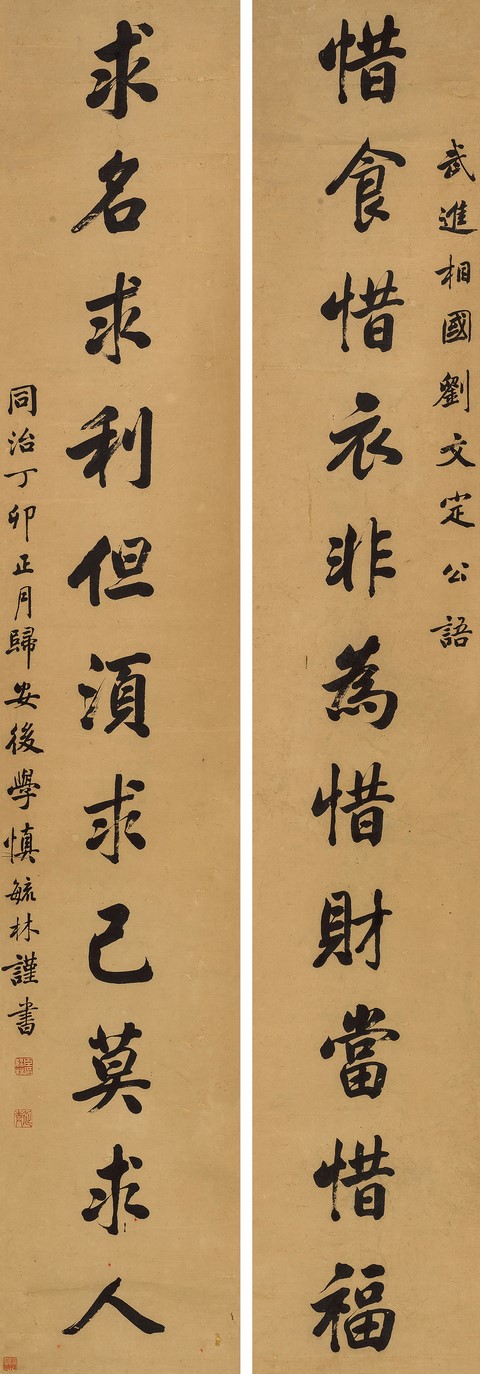 武進相國劉文定公語
惜食惜衣非為惜財當惜福
求名求利但須求己莫求人
同治丁卯正月歸安後學慎毓林謹書